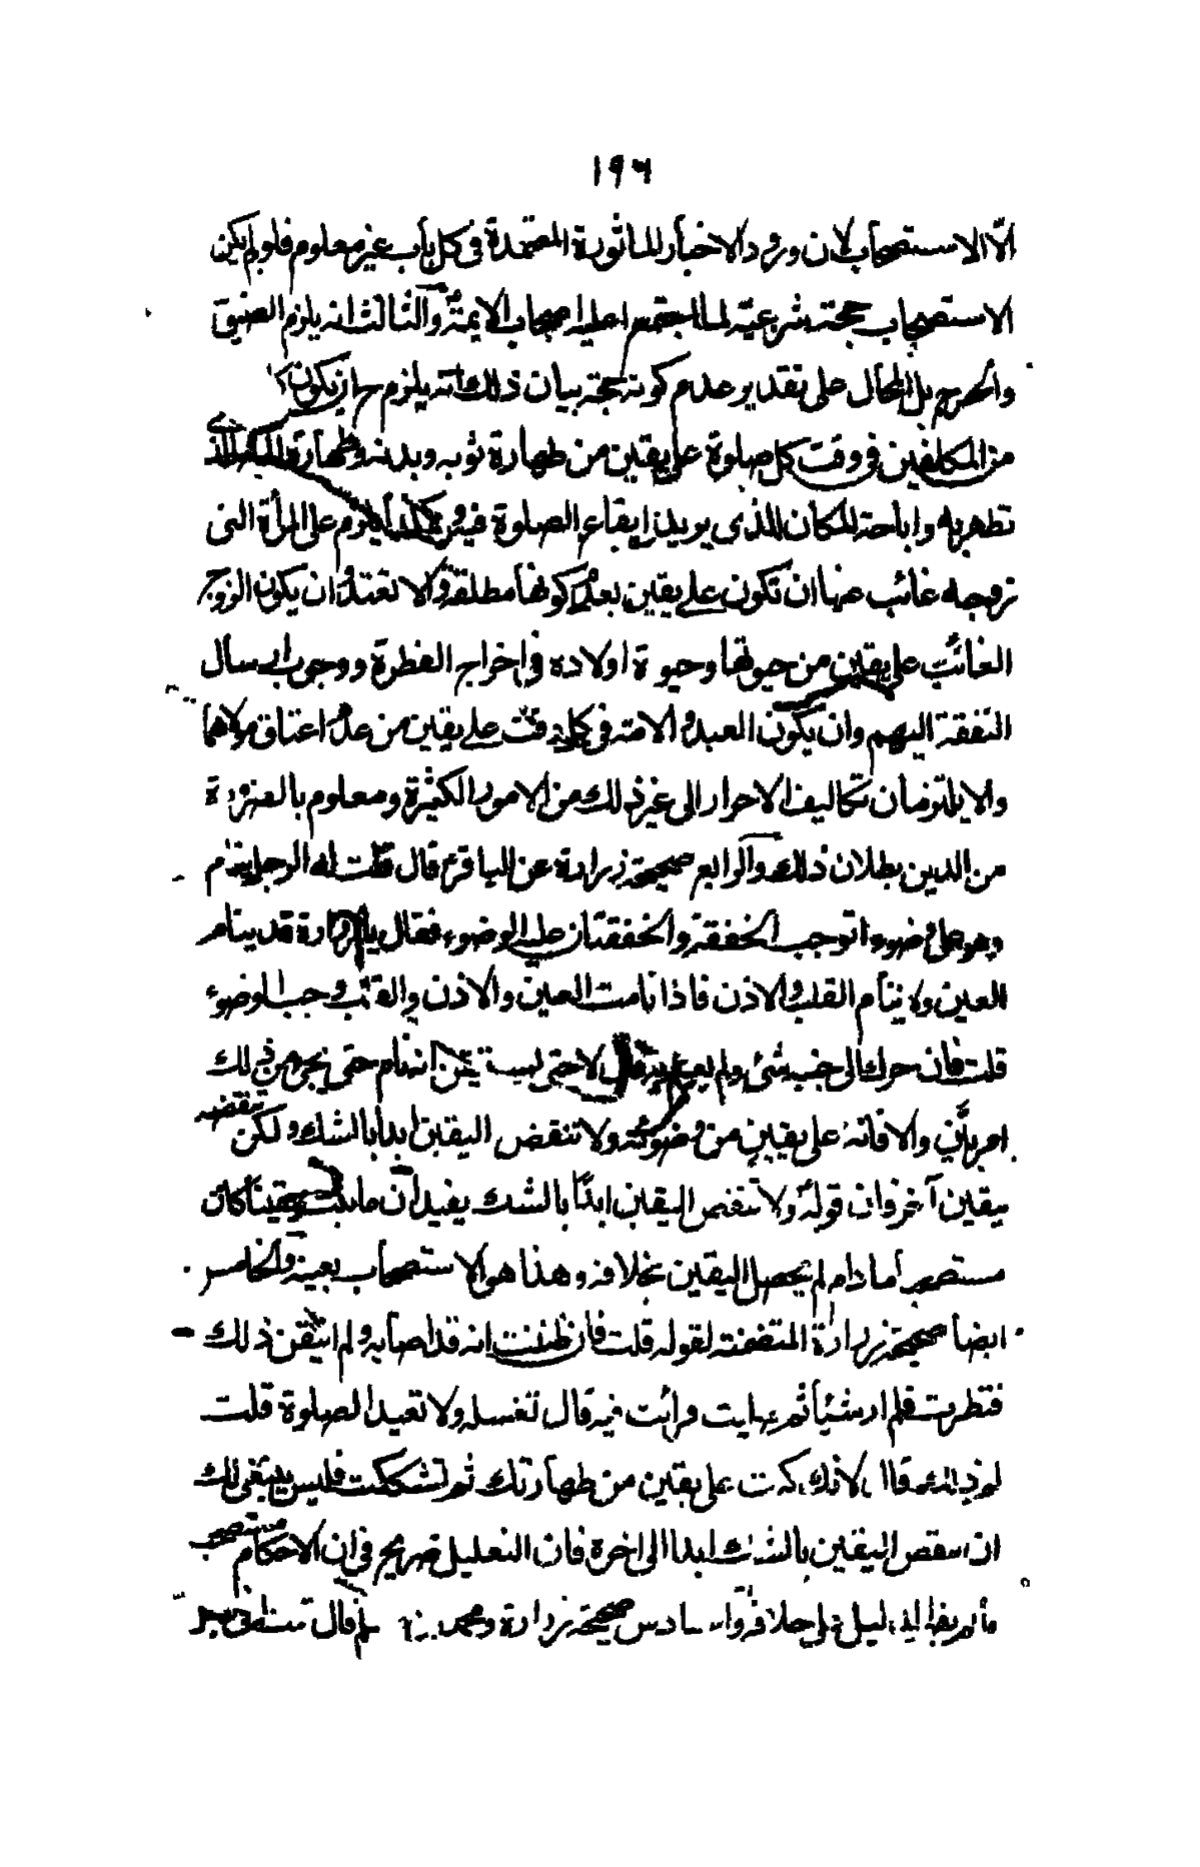 ١٩٦
الّا الاستصحاب لان ورود الاخبار الماثورة المعتمدة فى كل باب غير معلوم فلو لم يكن
الاستصحاب حجته شرعيّة لما اجتمع عليه اصحاب الايمة والثالث انه يلزم الضيق
والحرج بل المحال على تقدير عدم كونه حجته بيان ذلك انه يلزم ان يكون كل
من المكلفين فى وقت كل صلوة على يقين من طهارة ثوبه وبدنه وطهارة الماء الذى
تطهر به واباحته المكان الذى يريد ايقاع الصلوة فيه وكذا يلزم على المرأة التى
زوجها غائب عنها ان تكون على يقين بعدم كونها مطلقة والا تعتد وان يكون الزوج
الغائب على يقين من حيوتها وحيوة اولاده فى اخراج الفطرة ووجوب ارسال
النفقة اليهم وان يكون العبد والامته فى كل وقت على يقين من عدم اعتاق مولاهما
والا يلتزمان تكاليف الاحرار الى غير ذلك من الامور الكثيرة ومعلوم بالضرورة
من الدين بطلان ذلك والرابع صحيحة زرارة عن الباقر ع قال قلت له الرجل ينام
وهو على وضوء اتوجب الخفقة والخفقتان عليه الوضوء فقال يا زرارة قد ينام
العين ولا ينام القلب والاذن فاذا نامت العين والاذن والقلب وجب الوضوء
قلت فان حرك الى جنبه شئ ولم يعلم به قال لا حتى يستيقن انه نام حتى يجئ من ذلك
امر بيّن والا فانه على يقين من وضوئه ولا تنقض اليقين ابدا بالشك ولكن تنقضه
بيقين آخر فان قوله ولا تنقض اليقين ابدًا بالشك يفيد ان ما ثبت يقينا كان
مستصحبا ما دام لم يحصل اليقين بخلافه وهذا هو الاستصحاب بعينه والخامس
ايضا صحيحة زرارة المتضمنة لقوله قلت فان ظننت انه قد اصابه ولم اتيقن ذلك
فنظرت فلم ار شيئا ثم صليت فرأيت فيه قال تغسله ولا تعيد الصلوة قلت
لم ذلك قال لانك كنت على يقين من طهارتك ثم تشككت فليس ينبغى لك
ان تنقض اليقين بالشك ابدا الى اخره فان التعليل صريح فى ان الاحكام مستصحب
ما لم يقم الدليل على خلافه والسادس صحيحة زرارة ومحمد بن مسلم قال